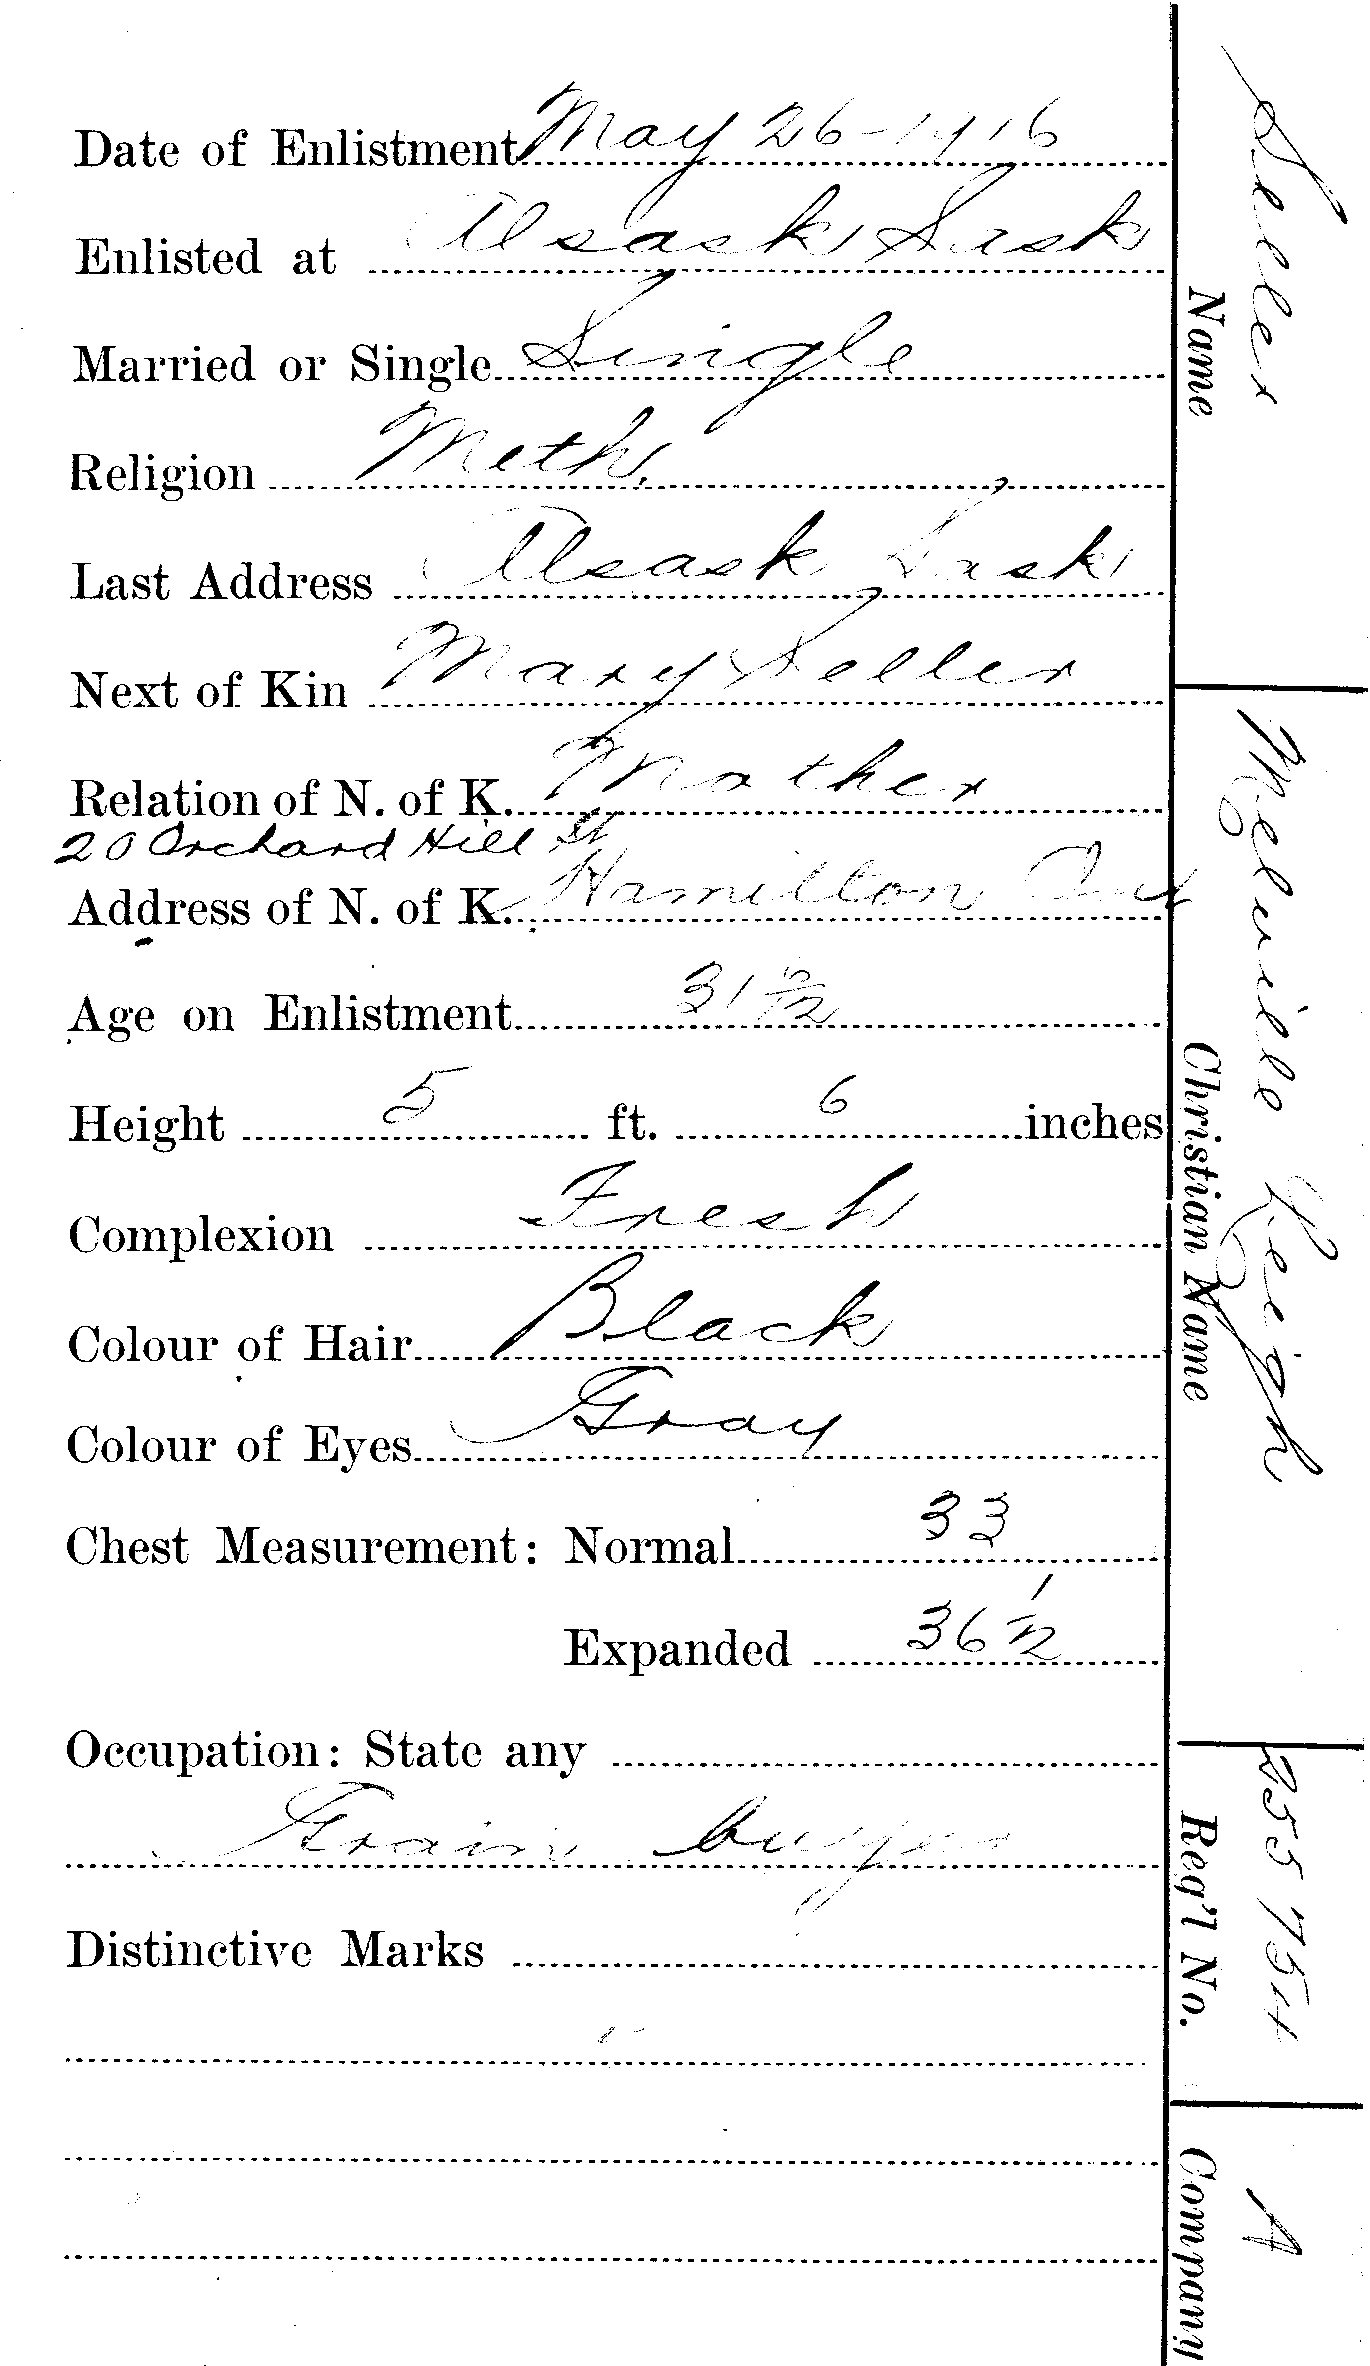 Date of Enlistment May 26 - 1916
Enlisted at Alsask Sask
Married or Single Single
Religion Meth.
Last Address Alsask Sask
Next of Kin Mary Seller
Relation of N. of K. Mother
20 Orchard Hill St
Address of N. of K. Hamilton Ont
Age on Enlistment 31
Height 5 ft. 6 inches
Complexion Fresh
Colour of Hair Black
Colour of Eyes Gray
Chest Measurement: Normal 33
Expanded 36 1/2
Occupation: State any
Grain buyer
Distinctive Marks
Seller
Name
Melville Leigh
Christian Name
255754
Reg'l No.
A
Company